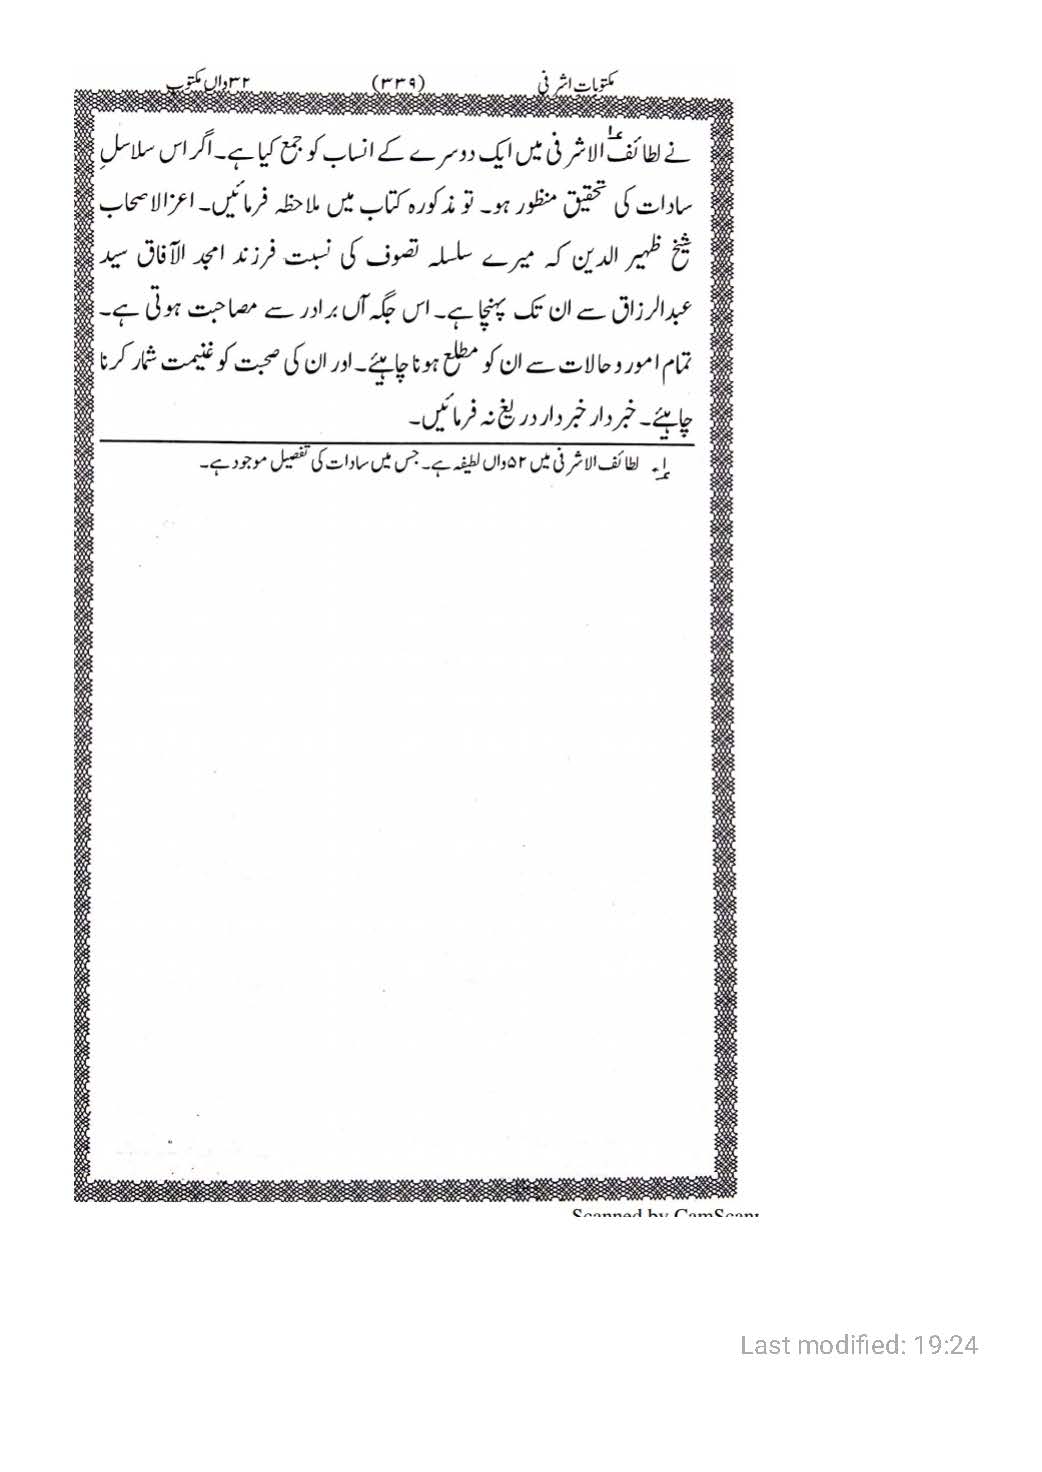 مکتوبات اشرفی (۳۳۹) ۳۲واں مکتوب
نے لطائف الاشرفی میں ایک دوسرے کے انساب کو جمع کیا ہے۔ اگر اس سلاسلِ
سادات کی تحقیق منظور ہو۔ تو مذکورہ کتاب میں ملاحظہ فرمائیں۔ اعز الاصحاب
شیخ ظہیر الدین کہ میرے سلسلہ تصوف کی نسبت فرزند امجد الآفاق سید
عبدالرزاق سے ان تک پہنچا ہے۔ اس جگہ آں برادر سے مصاحبت ہوتی ہے۔
تمام امور و حالات سے ان کو مطلع ہونا چاہیئے۔ اور ان کی صحبت کو غنیمت شمار کرنا
چاہیئے۔ خبردار خبردار دریغ نہ فرمائیں۔
۱۔ لطائف الاشرفی میں ۵۲واں لطیفہ ہے۔ جس میں سادات کی تفصیل موجود ہے۔
Scanned by CamScan
Last modified: 19:24